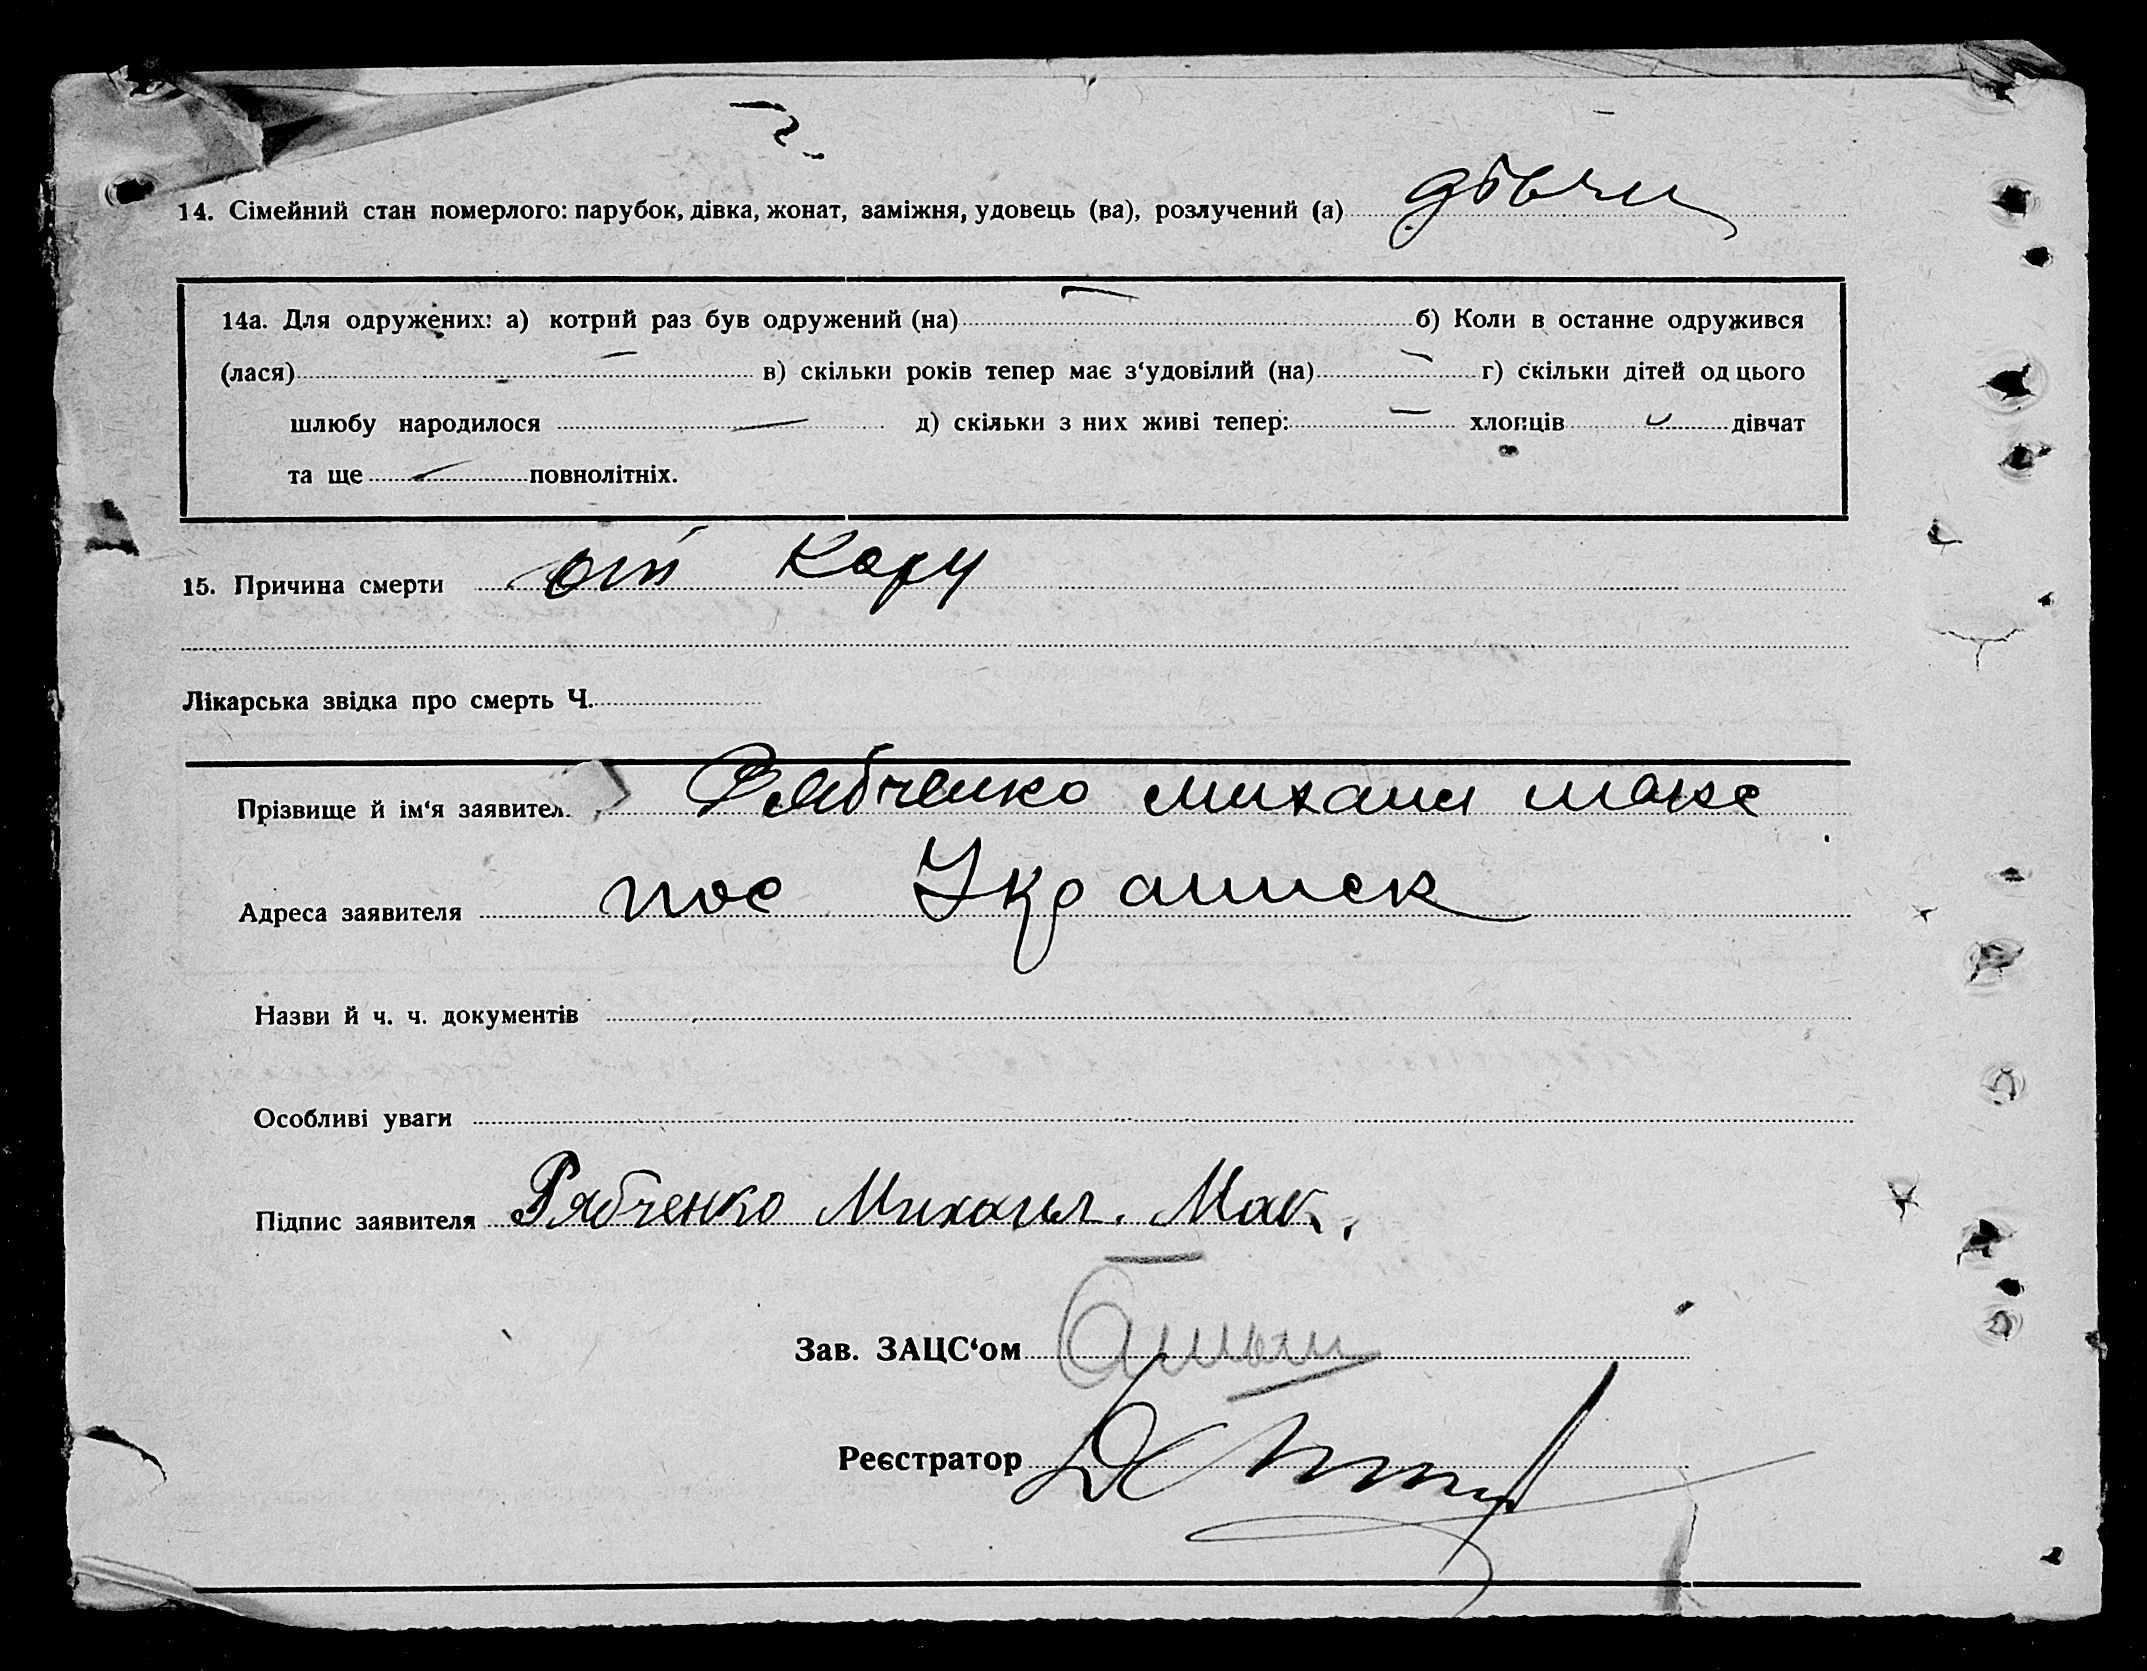 14. Сімейний стан померлого: парубок, дівка, жонат, заміжня, удовець (ва), розлучений (а)
14а. Для одружених: а) котрий раз був одружений (на) — б) Коли в останне одружився
(лася) — в) скільки років тепер має з‘удовілий (на) — г) скільки дітей од цього
шлюбу народилося — д) скільки з них живі тепер: — хлопців дівчат
та ще — повнолітніх.
15. Причина смерти от кору
Лікарська звідка про смерть Ч.
Прізвище й ім‘я заявител. Рябченко Михаил
Адреса заявителя пос Украинск
Назви й ч. ч. документів
Особливі уваги
Підпис заявителя Рябченко Михаил. Мак.
Зав. ЗАЦС‘ом
Реєстратор